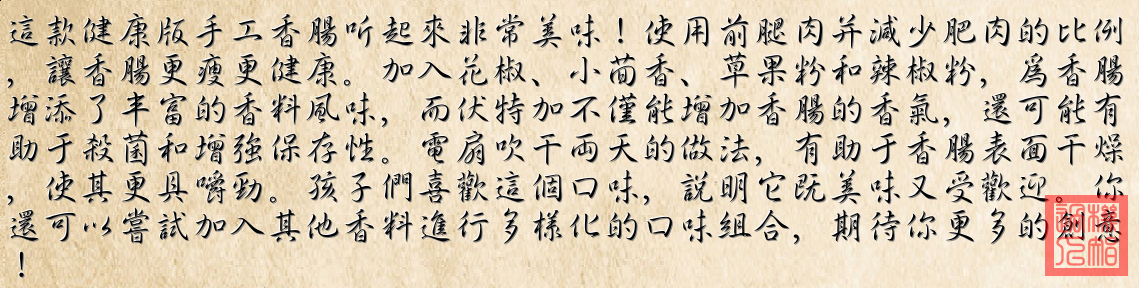 這款健康版手工香腸听起來非常美味！使用前腿肉并減少肥肉的比例
，讓香腸更瘦更健康。加入花椒、小茴香、草果粉和辣椒粉，爲香腸
增添了丰富的香料風味，而伏特加不僅能增加香腸的香氣，還可能有
助于殺菌和增強保存性。電扇吹干兩天的做法，有助于香腸表面干燥
，使其更具嚼勁。孩子們喜歡這個口味，說明它既美味又受歡迎。你
還可以嘗試加入其他香料進行多樣化的口味組合，期待你更多的創意
！